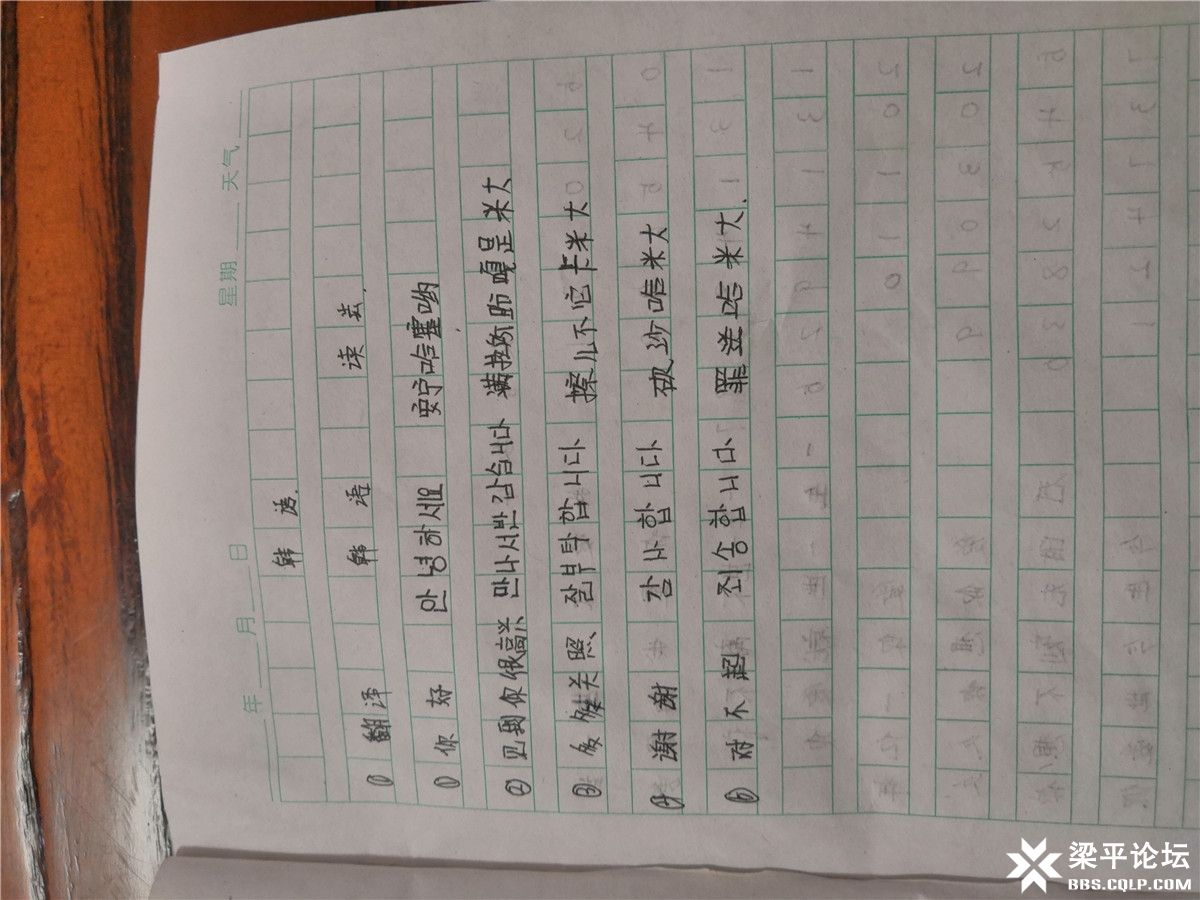 年 月 日 星期 天气
韩 语.
① 翻译 韩 语 读 芸.
① 你 好 안녕하세요 安宁哈塞哟
② 见到你很高兴、 만나서반갑습니다 满拉 嘎是米大
③ 多多关照、 잘부탁합니다 擦儿不它卡米大
④ 谢 谢 감사합니다 砍沙哈米大
⑤ 对 不 起 죄송합니다 罪送哈米大.
梁平论坛
BBS.CQLP.COM